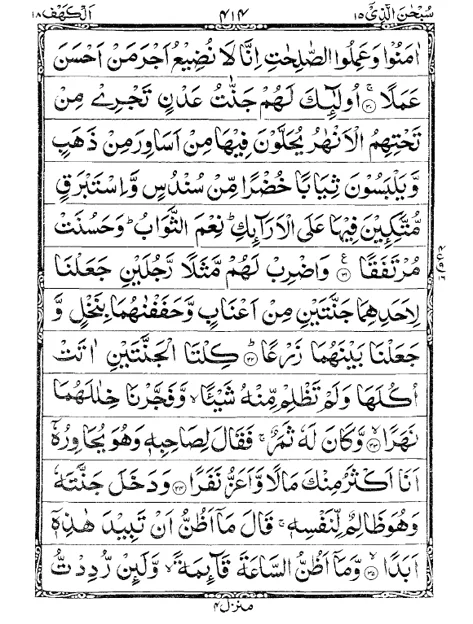 سُبْحٰنَ الَّذِیْۤ ۱۵ ۴۱۴ اَلْکَهْف ۱۸
اٰمَنُوْا وَعَمِلُوا الصّٰلِحٰتِ اِنَّا لَا نُضِیْعُ اَجْرَ مَنْ اَحْسَنَ
عَمَلًا ۳۰ اُولٰٓئِکَ لَهُمْ جَنّٰتُ عَدْنٍ تَجْرِیْ مِنْ
تَحْتِهِمُ الْاَنْهٰرُ یُحَلَّوْنَ فِیْهَا مِنْ اَسَاوِرَ مِنْ ذَهَبٍ
وَّیَلْبَسُوْنَ ثِیَابًا خُضْرًا مِّنْ سُنْدُسٍ وَّاِسْتَبْرَقٍ
مُّتَّکِـِٕیْنَ فِیْهَا عَلَی الْاَرَآئِکِ ؕ نِعْمَ الثَّوَابُ ؕ وَحَسُنَتْ
مُرْتَفَقًا ۳۱ وَاضْرِبْ لَهُمْ مَّثَلًا رَّجُلَیْنِ جَعَلْنَا
لِاَحَدِهِمَا جَنَّتَیْنِ مِنْ اَعْنَابٍ وَّحَفَفْنٰهُمَا بِنَخْلٍ وَّ
جَعَلْنَا بَیْنَهُمَا زَرْعًا ؕ ۳۲ کِلْتَا الْجَنَّتَیْنِ اٰتَتْ
اُکُلَهَا وَلَمْ تَظْلِمْ مِّنْهُ شَیْـًٔا ۙ وَّفَجَّرْنَا خِلٰلَهُمَا
نَهَرًا ۳۳ ۙ وَّکَانَ لَهٗ ثَمَرٌ ۚ فَقَالَ لِصَاحِبِهٖ وَهُوَ یُحَاوِرُهٗۤ
اَنَا اَکْثَرُ مِنْکَ مَالًا وَّاَعَزُّ نَفَرًا ۳۴ وَدَخَلَ جَنَّتَهٗ
وَهُوَ ظَالِمٌ لِّنَفْسِهٖ ۚ قَالَ مَاۤ اَظُنُّ اَنْ تَبِیْدَ هٰذِهٖۤ
اَبَدًا ۳۵ ۙ وَّمَاۤ اَظُنُّ السَّاعَةَ قَآئِمَةً ۙ وَّلَئِنْ رُّدِدْتُّ
منزل ۴